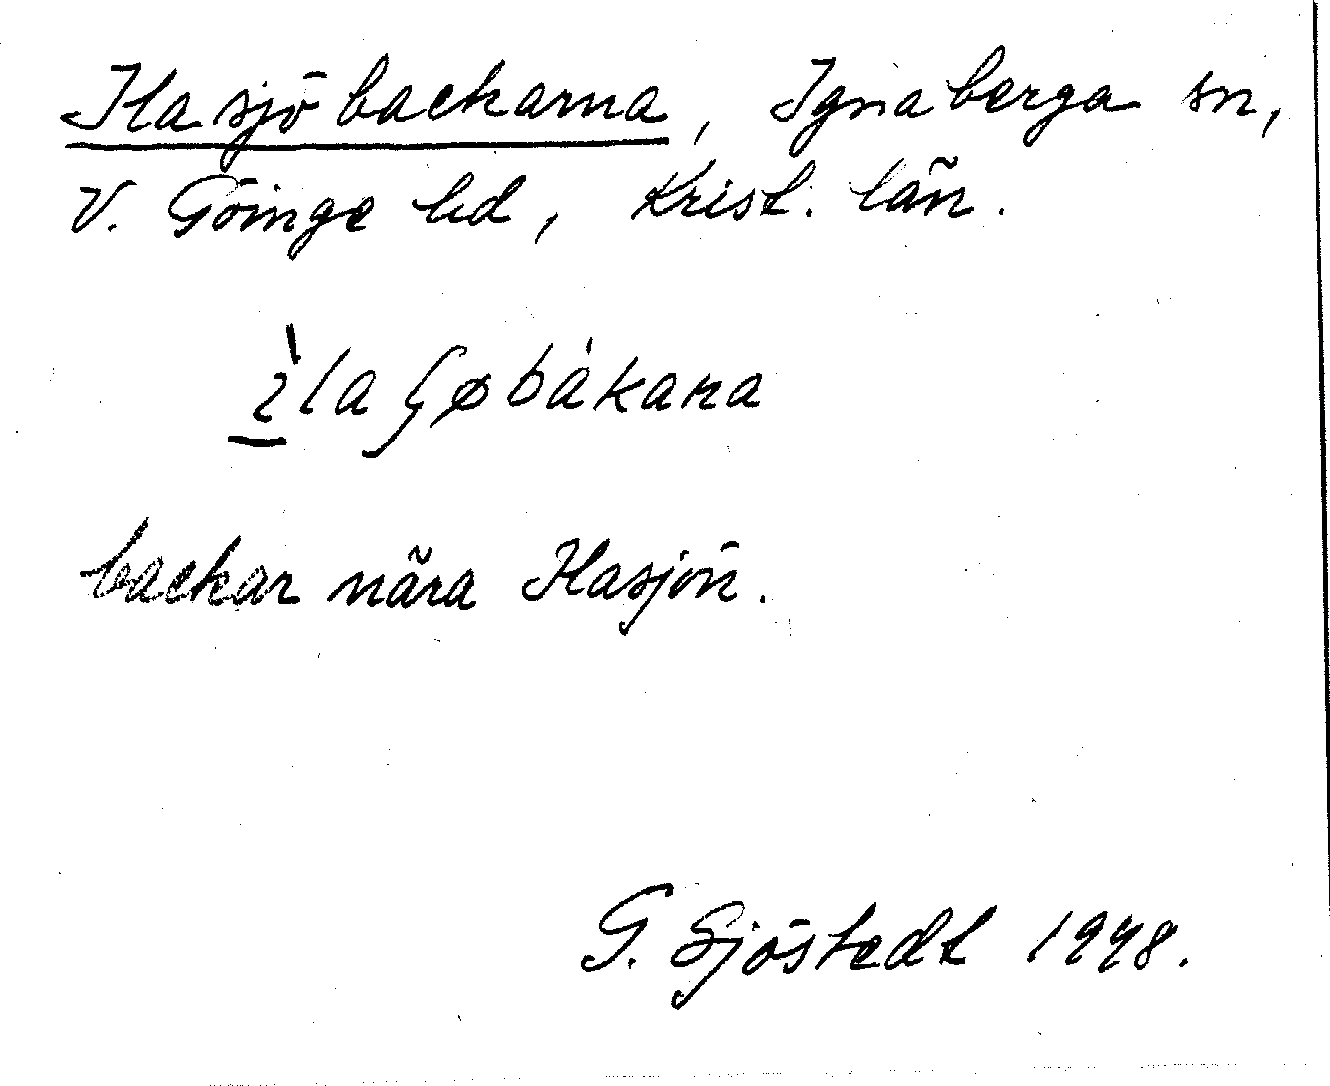 Ilasjöbackarna, Ignaberga sn,
V. Göinge hd, Krist. län.
ìlaʃøbákana
backar nära Ilasjön.
G. Sjöstedt 1948.